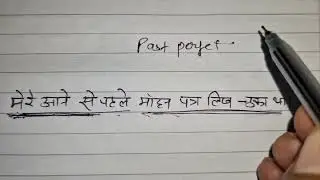 Past perfet
मेरे आने से पहले मोहन पत्र लिख चुका था